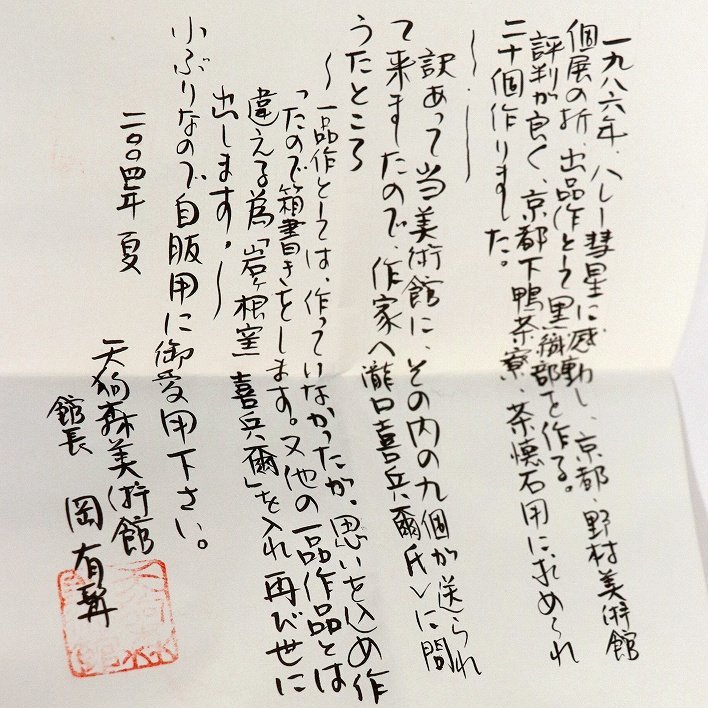 一九八六年、ハレー彗星に感動し、京都・野村美術館
個展の折、出品作として黒織部を作る。
評判が良く、京都下鴨茶寮、茶懐石用に求められ
二十個作りました。
〜・〜
訳あって当美術館に、その内の九個が送られ
て来ましたので、作家へ瀧口喜兵爾氏〉に問
うたところ
〜一品作としては、作っていなかったが、思いを込め作
ったので箱書きをします。又他の一品作品とは
違える為「岩ヶ根窯 喜兵爾」を入れ再び世に
出します。〜
小ぶりなので自服用に御愛用下さい。
二〇〇四年 夏
天狗森美術館
館長 岡 有